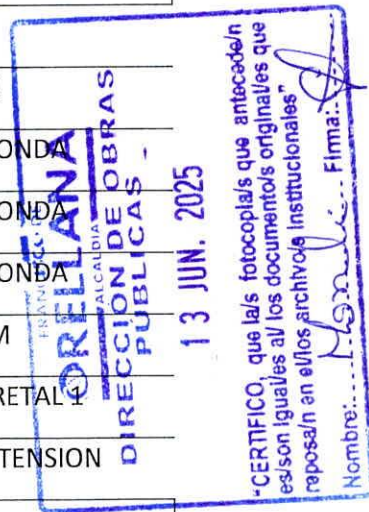 ONDA
ONDA
ONDA
M
RETAL 1
TENSION
ORELLANA
ALCALDIA
DIRECCIÓN DE OBRAS
PÚBLICAS -
13 JUN. 2025
"CERTIFICO, que la/s fotocopia/s que antecede/n
es/son igual/es al/ los documento/s original/es que
reposa/n en el/los archivo/s Institucionales"
Nombre:............ Firma:.......